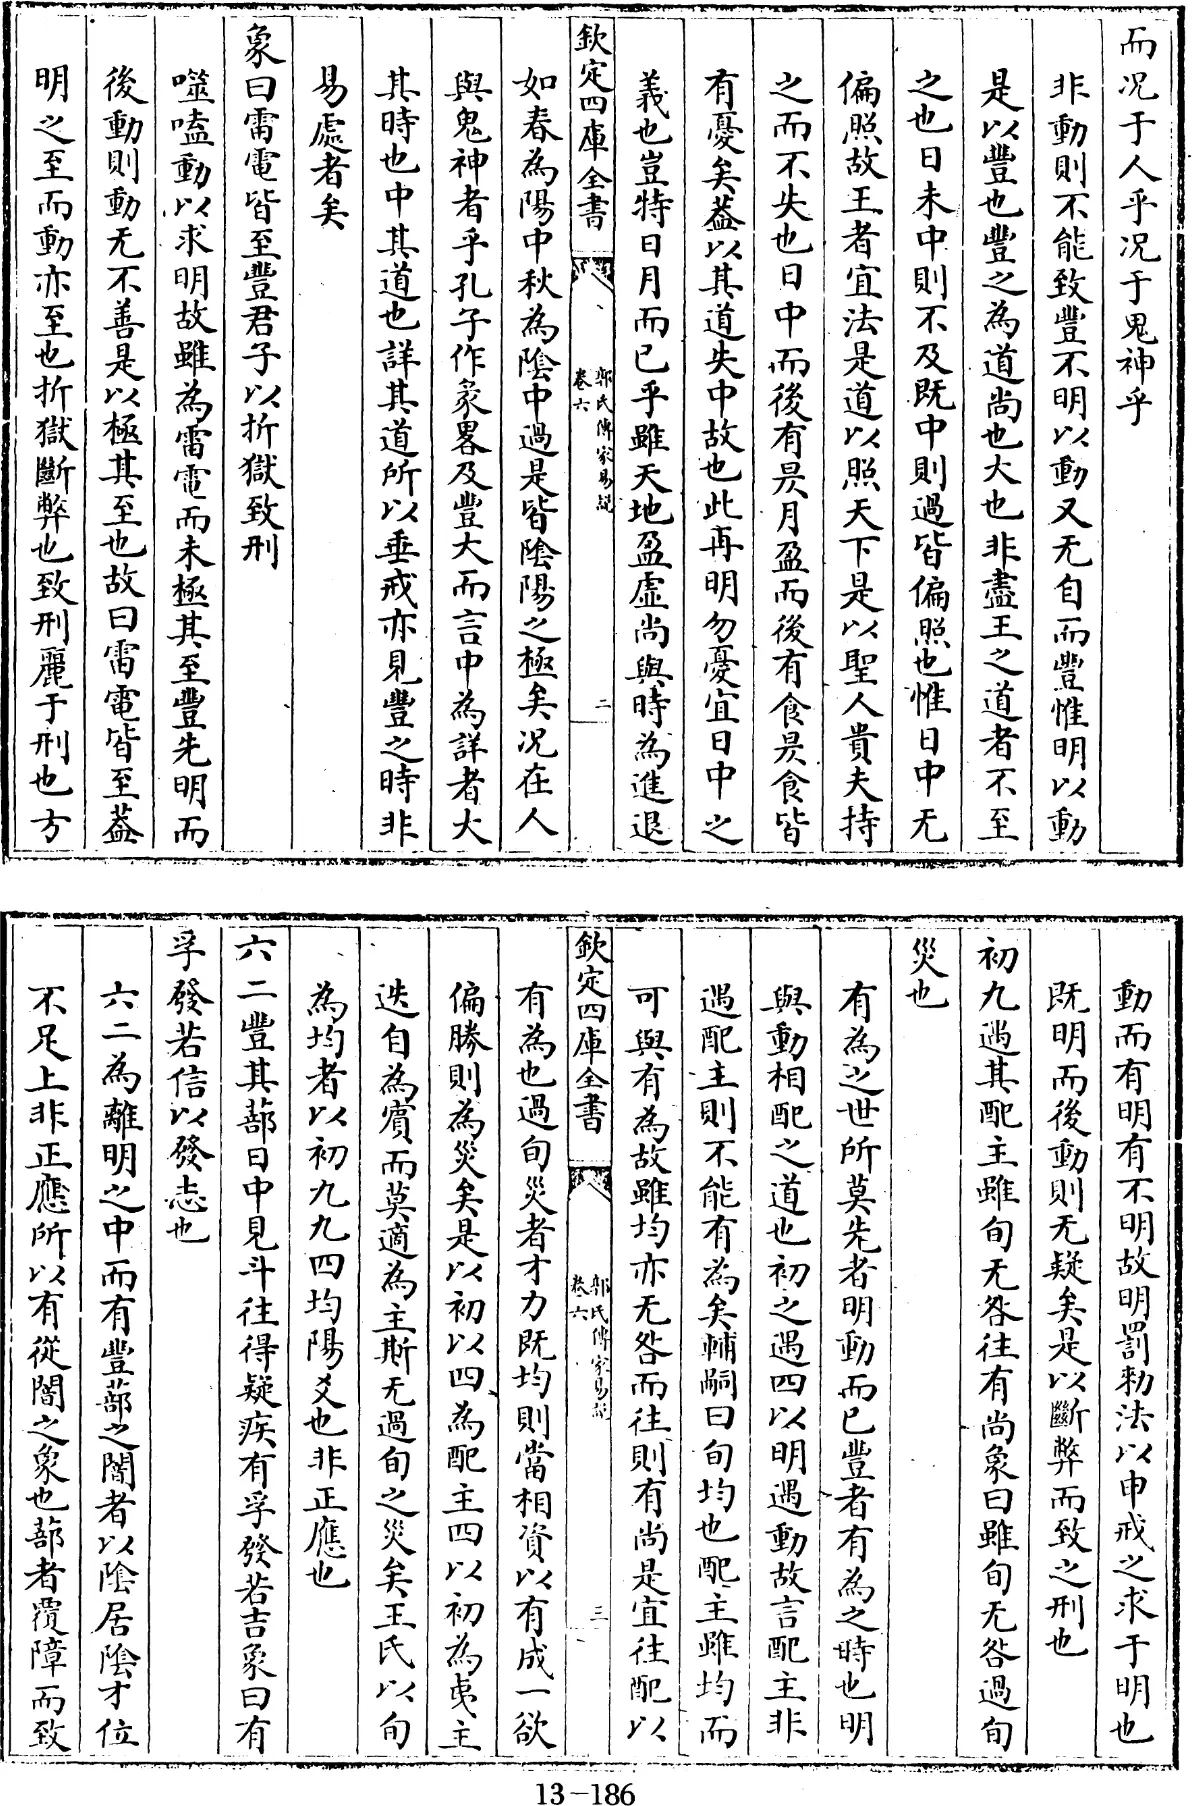 而况于人乎况于鬼神乎
非動則不能致豐不明以動又无自而豐惟明以動
是以豐也豐之為道尚也大也非盡王之道者不至
之也日未中則不及既中則過皆偏照也惟日中无
偏照故王者宜法是道以照天下是以聖人貴夫持
之而不失也日中而後有昃月盈而後有食昃食皆
有憂矣葢以其道失中故也此再明勿憂宜日中之
義也豈特日月而已乎雖天地盈虛尚與時為進退
欽定四庫全書
郭氏傳家易說
卷六
二
如春為陽中秋為陰中過是皆陰陽之極矣况在人
與鬼神者乎孔子作彖畧及豐大而言中為詳者大
其時也中其道也詳其道所以垂戒亦見豐之時非
易處者矣
象曰雷電皆至豐君子以折獄致刑
噬嗑動以求明故雖為雷電而未極其至豐先明而
後動則動无不善是以極其至也故曰雷電皆至葢
明之至而動亦至也折獄斷弊也致刑麗于刑也方
動而有明有不明故明罰勑法以申戒之求于明也
既明而後動則无疑矣是以斷弊而致之刑也
初九遇其配主雖旬无咎往有尚象曰雖旬无咎過旬
災也
有為之世所莫先者明動而已豐者有為之時也明
與動相配之道也初之遇四以明遇動故言配主非
遇配主則不能有為矣輔嗣曰旬均也配主雖均而
可與有為故雖均亦无咎而往則有尚是宜往配以
欽定四庫全書
郭氏傳家易說
卷六
三
有為也過旬災者才力既均則當相資以有成一欲
偏勝則為災矣是以初以四為配主四以初為夷主
迭自為賓而莫適為主斯无過旬之災矣王氏以旬
為均者以初九九四均陽爻也非正應也
六二豐其蔀日中見斗往得疑疾有孚發若吉象曰有
孚發若信以發志也
六二為離明之中而有豐蔀之闇者以陰居陰才位
不足上非正應所以有從闇之象也蔀者覆障而致
13-186